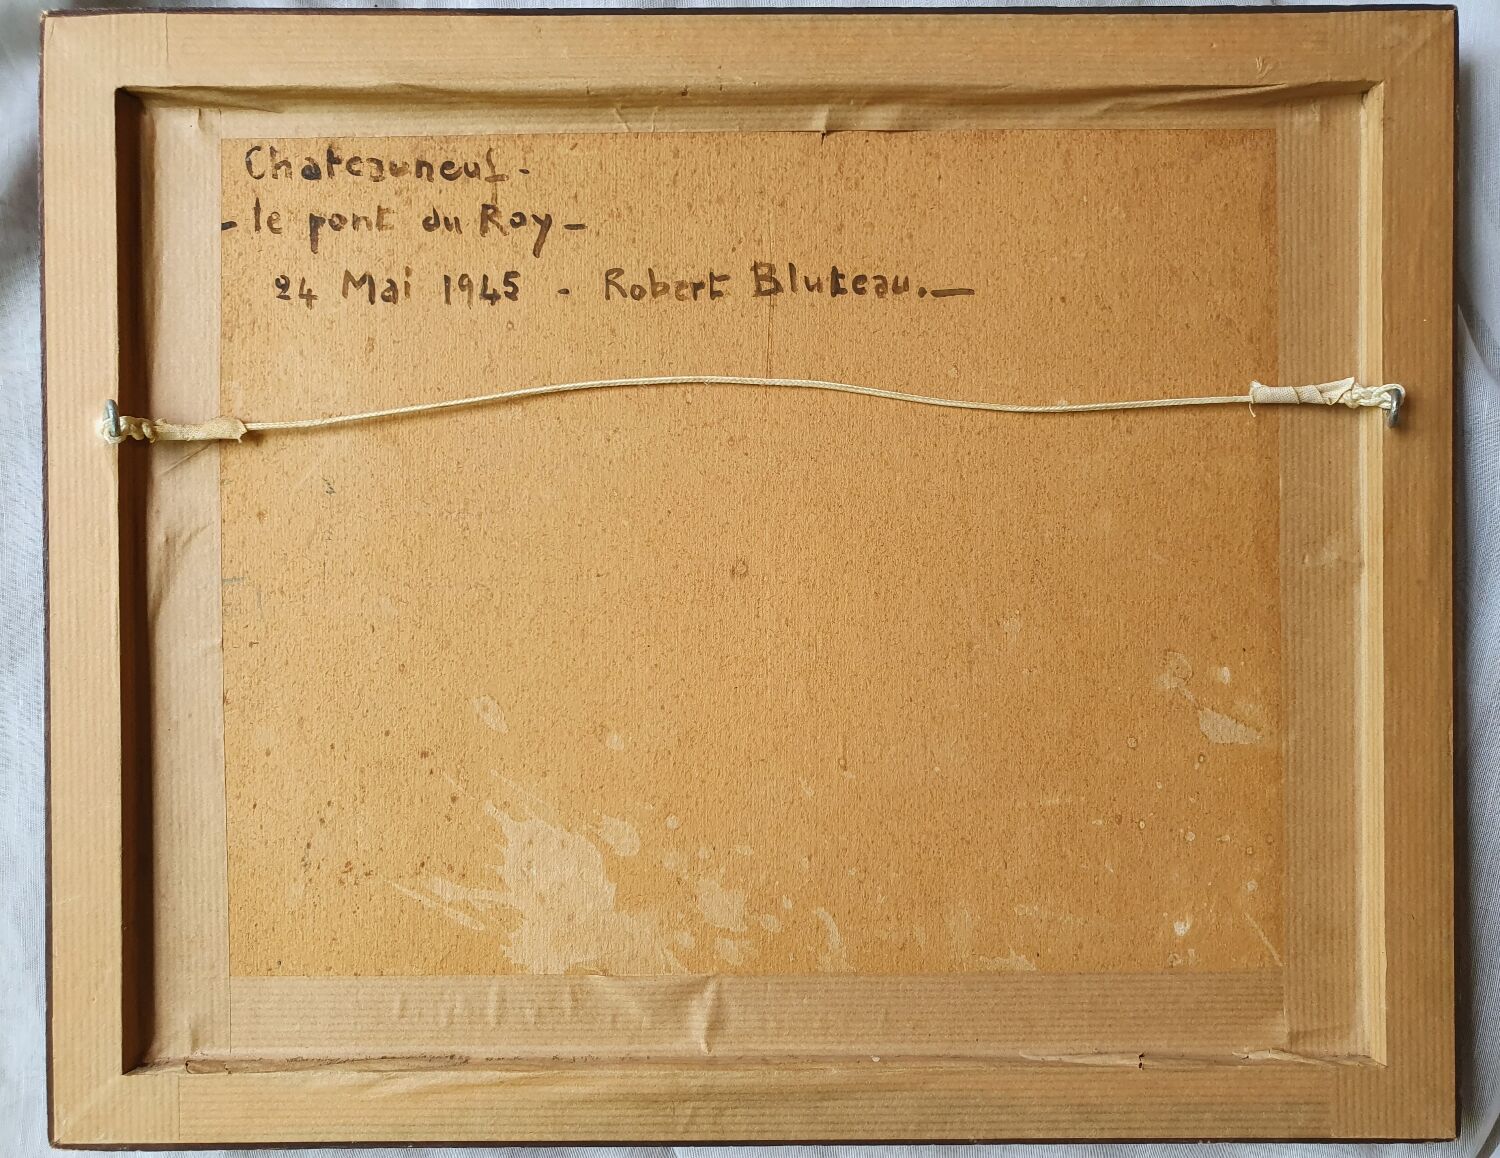 Chateauneuf -
- le pont du Roy -
24 Mai 1945 - Robert Bluteau. —